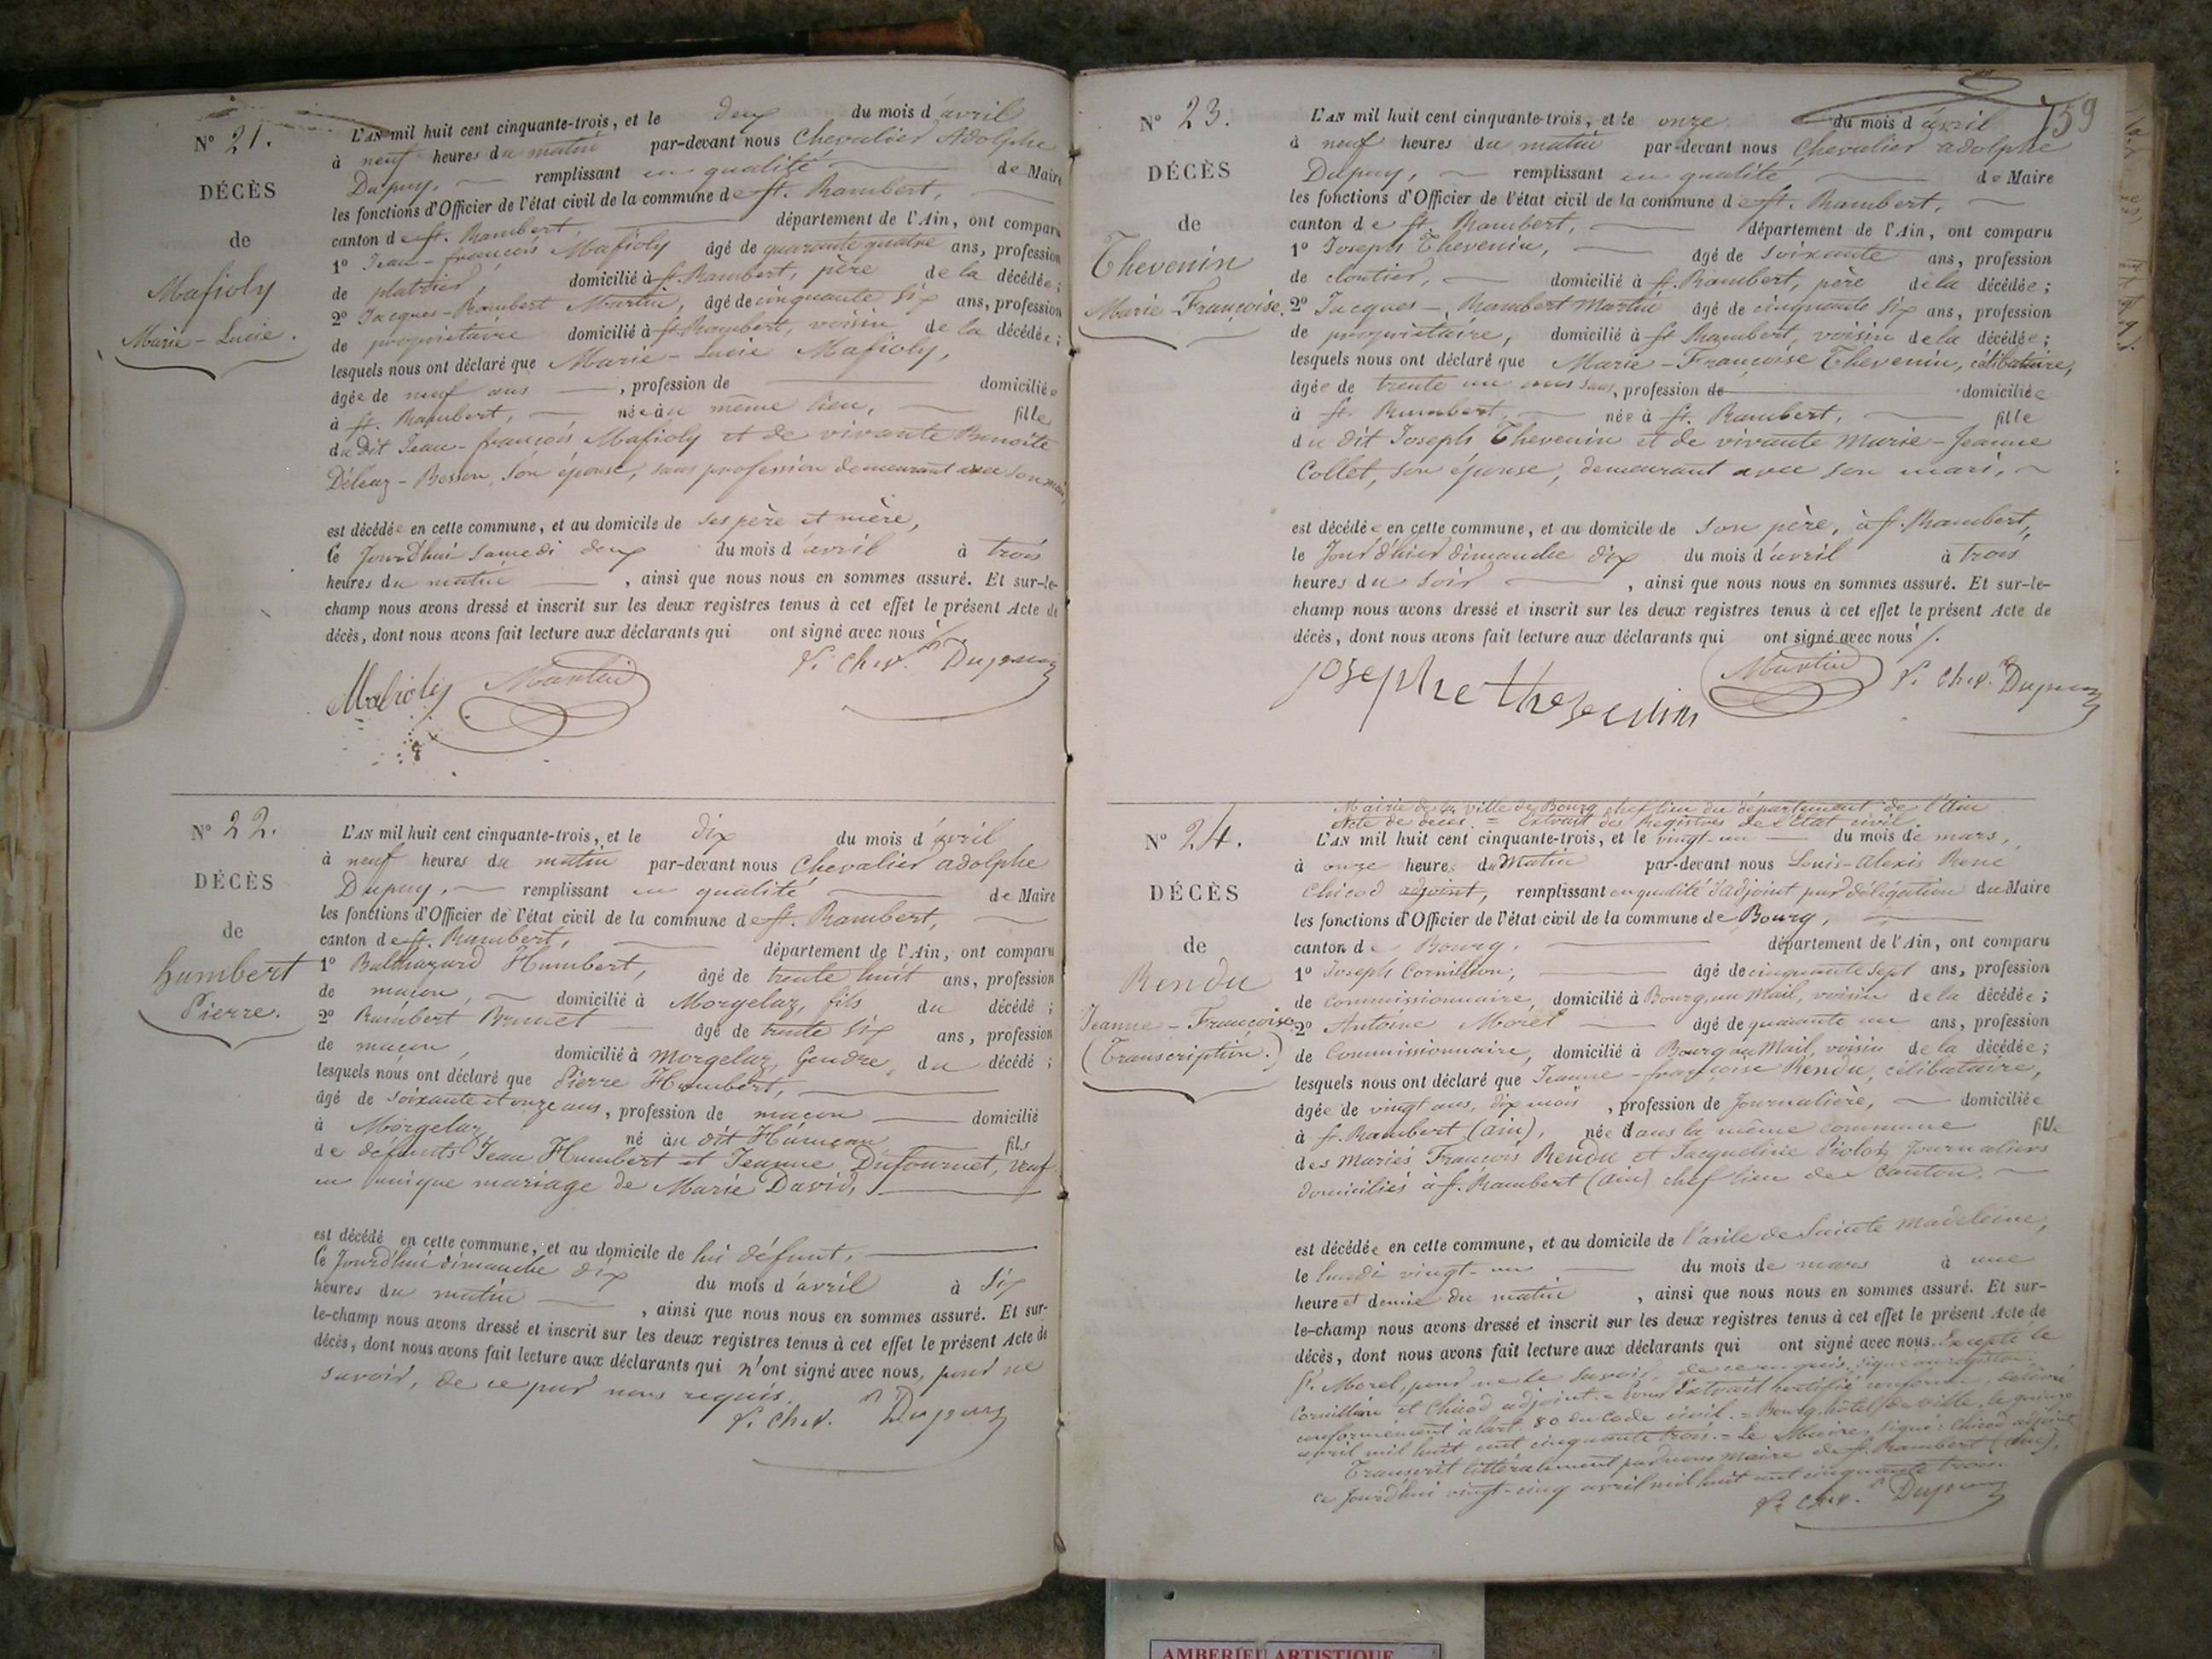 N° 21.
DÉCÈS
de
Mafioly
Marie-Lucie.
L'AN mil huit cent cinquante-trois, et le deux du mois d'avril
à neuf heures du matin par-devant nous Chevalier Adolphe
Dupuy, remplissant en qualité de Maire
les fonctions d'Officier de l'état civil de la commune de St. Rambert,
canton de St. Rambert, département de l'Ain, ont comparu
1° Jean-françois Mafioly âgé de quarante quatre ans, profession
de platrier, domicilié à St. Rambert, père de la décédée;
2° Jacques-Rambert Martin, âgé de cinquante six ans, profession
de propriétaire domicilié à St Rambert, voisin de la décédée;
lesquels nous ont déclaré que Marie-Lucie Mafioly,
âgée de neuf ans, profession de domiciliée
à St. Rambert, née au même lieu, fille
du dit Jean-françois Mafioly et de vivante Benoite
Déleaz-Besson, son épouse, sans profession demeurant avec son mari,
est décédée en cette commune, et au domicile de ses père et mère,
ce Jourd'hui samedi deux du mois d'avril à trois
heures du matin, ainsi que nous nous en sommes assuré. Et sur-le-
champ nous avons dressé et inscrit sur les deux registres tenus à cet effet le présent Acte de
décès, dont nous avons fait lecture aux déclarants qui ont signé avec nous /.
Mafioly Martin Chev. Dupuy
N° 22.
DÉCÈS
de
humbert
Pierre.
L'AN mil huit cent cinquante-trois, et le dix du mois d'avril
à neuf heures du matin par-devant nous Chevalier adolphe
Dupuy, remplissant en qualité de Maire
les fonctions d'Officier de l'état civil de la commune de St. Rambert,
canton de St. Rambert, département de l'Ain, ont comparu
1° Balthazard Humbert, âgé de trente huit ans, profession
de maçon, domicilié à Morgelaz, fils du décédé;
2° Rambert Brunet âgé de trente six ans, profession
de maçon, domicilié à Morgelaz, Gendre, du décédé;
lesquels nous ont déclaré que Pierre Humbert,
âgé de soixante et onze ans, profession de maçon domicilié
à Morgelaz né au dit Hameau fils
de défunts Jean Humbert et Jeanne Dufournet, veuf
en unique mariage de Marie David,
est décédé en cette commune, et au domicile de lui défunt,
ce Jourd'hui dimanche dix du mois d'avril à six
heures du matin, ainsi que nous nous en sommes assuré. Et sur-
le-champ nous avons dressé et inscrit sur les deux registres tenus à cet effet le présent Acte de
décès, dont nous avons fait lecture aux déclarants qui n'ont signé avec nous, pour ne
savoir, de ce par nous requis.
Chev. Dupuy
759
N° 23.
DÉCÈS
de
Thevenin
Marie-Françoise.
L'AN mil huit cent cinquante-trois, et le onze du mois d'avril
à neuf heures du matin par-devant nous Chevalier adolphe
Dupuy, remplissant en qualité de Maire
les fonctions d'Officier de l'état civil de la commune de St. Rambert,
canton de St. Rambert, département de l'Ain, ont comparu
1° Joseph Thevenin, âgé de soixante ans, profession
de cloutier, domicilié à St. Rambert, père de la décédée;
2° Jacques-Rambert Martin âgé de cinquante six ans, profession
de propriétaire, domicilié à St Rambert, voisin de la décédée;
lesquels nous ont déclaré que Marie-Françoise Thevenin, célibataire,
âgée de trente un ans sans, profession de domiciliée
à St. Rambert, née à St. Rambert, fille
du dit Joseph Thevenin et de vivante Marie-Jeanne
Collet, son épouse, demeurant avec son mari,
est décédée en cette commune, et au domicile de son père, à St. Rambert,
le Jour d'hier dimanche dix du mois d'avril à trois
heures du soir, ainsi que nous nous en sommes assuré. Et sur-le-
champ nous avons dressé et inscrit sur les deux registres tenus à cet effet le présent Acte de
décès, dont nous avons fait lecture aux déclarants qui ont signé avec nous /.
josephe thevenin Martin Chev. Dupuy
N° 24.
DÉCÈS
de
Rendu
Jeanne-Françoise
(Transcription.)
Mairie de la ville de Bourg chef lieu du département de l'Ain
Acte de décès = Extrait des Registres de l'Etat civil.
L'AN mil huit cent cinquante-trois, et le vingt-un du mois de mars,
à onze heures du Matin par-devant nous Louis-Alexis René
Chicod adjoint, remplissant en qualité d'adjoint par délégation du Maire
les fonctions d'Officier de l'état civil de la commune de Bourg,
canton de Bourg, département de l'Ain, ont comparu
1° Joseph Cornillion, âgé de cinquante sept ans, profession
de commissionnaire, domicilié à Bourg, au Mail, voisin de la décédée;
2° Antoine Morel âgé de quarante un ans, profession
de Commissionnaire, domicilié à Bourg au Mail, voisin de la décédée;
lesquels nous ont déclaré que Jeanne-françoise Rendu, célibataire,
âgée de vingt ans, dix mois, profession de Journalière, domiciliée
à St. Rambert (ain), née dans la même commune fille
des Mariés François Rendu et Jacqueline Journaliers
domiciliés à St. Rambert (ain) chef lieu de Canton,
est décédée en cette commune, et au domicile de l'asile de Sainte Madeleine,
le lundi vingt-un du mois de mars à une
heure et demie du matin, ainsi que nous nous en sommes assuré. Et sur-
le-champ nous avons dressé et inscrit sur les deux registres tenus à cet effet le présent Acte de
décès, dont nous avons fait lecture aux déclarants qui ont signé avec nous. Excepté le
Sr. Morel, pour ne le savoir, de ce requis. signé au registre:
Cornillion et Chicod adjoint. = Pour Extrait certifié conforme, délivré
conformément à l'art. 80 du Code civil. = Bourg, hôtel de ville, le quinze
avril mil huit cent cinquante trois. = Le Maire, signé: Chicod adjoint
Transcrit littéralement par nous Maire de St. Rambert (Ain),
ce Jourd'hui vingt-cinq avril mil huit cent cinquante trois.
Chev. Dupuy
AMBERIEU ARTISTIQUE